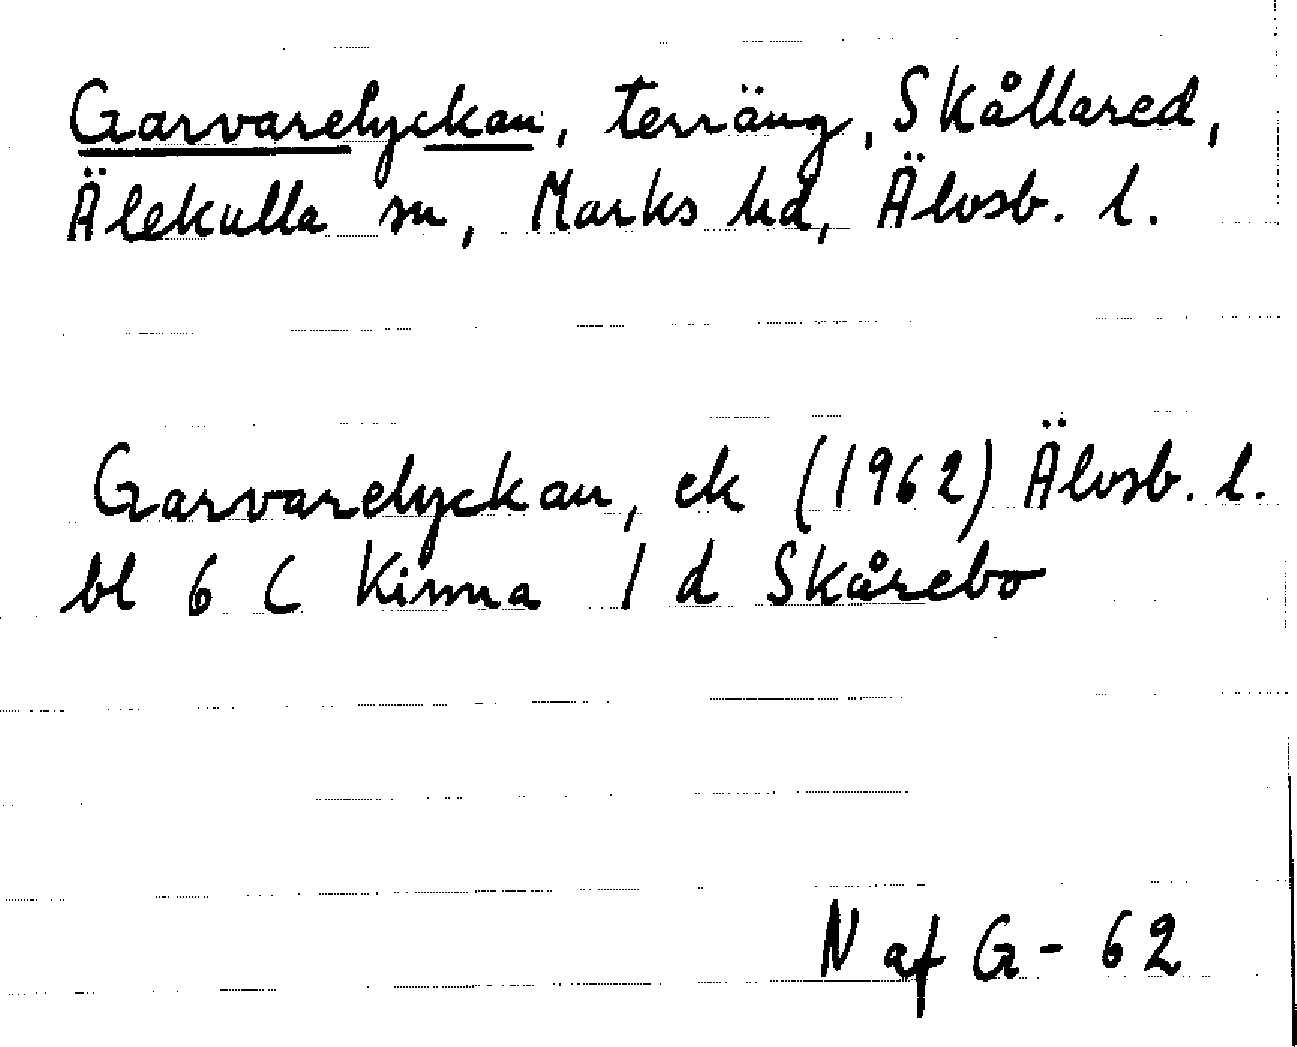 Garvarelyckan, terräng, Skållared,
Älekulla sn, Marks hd, Älvsb. l.
Garvarelyckan, ek (1962) Älvsb. l.
bl 6 C Kinna 1 d Skårebo
N af G - 62